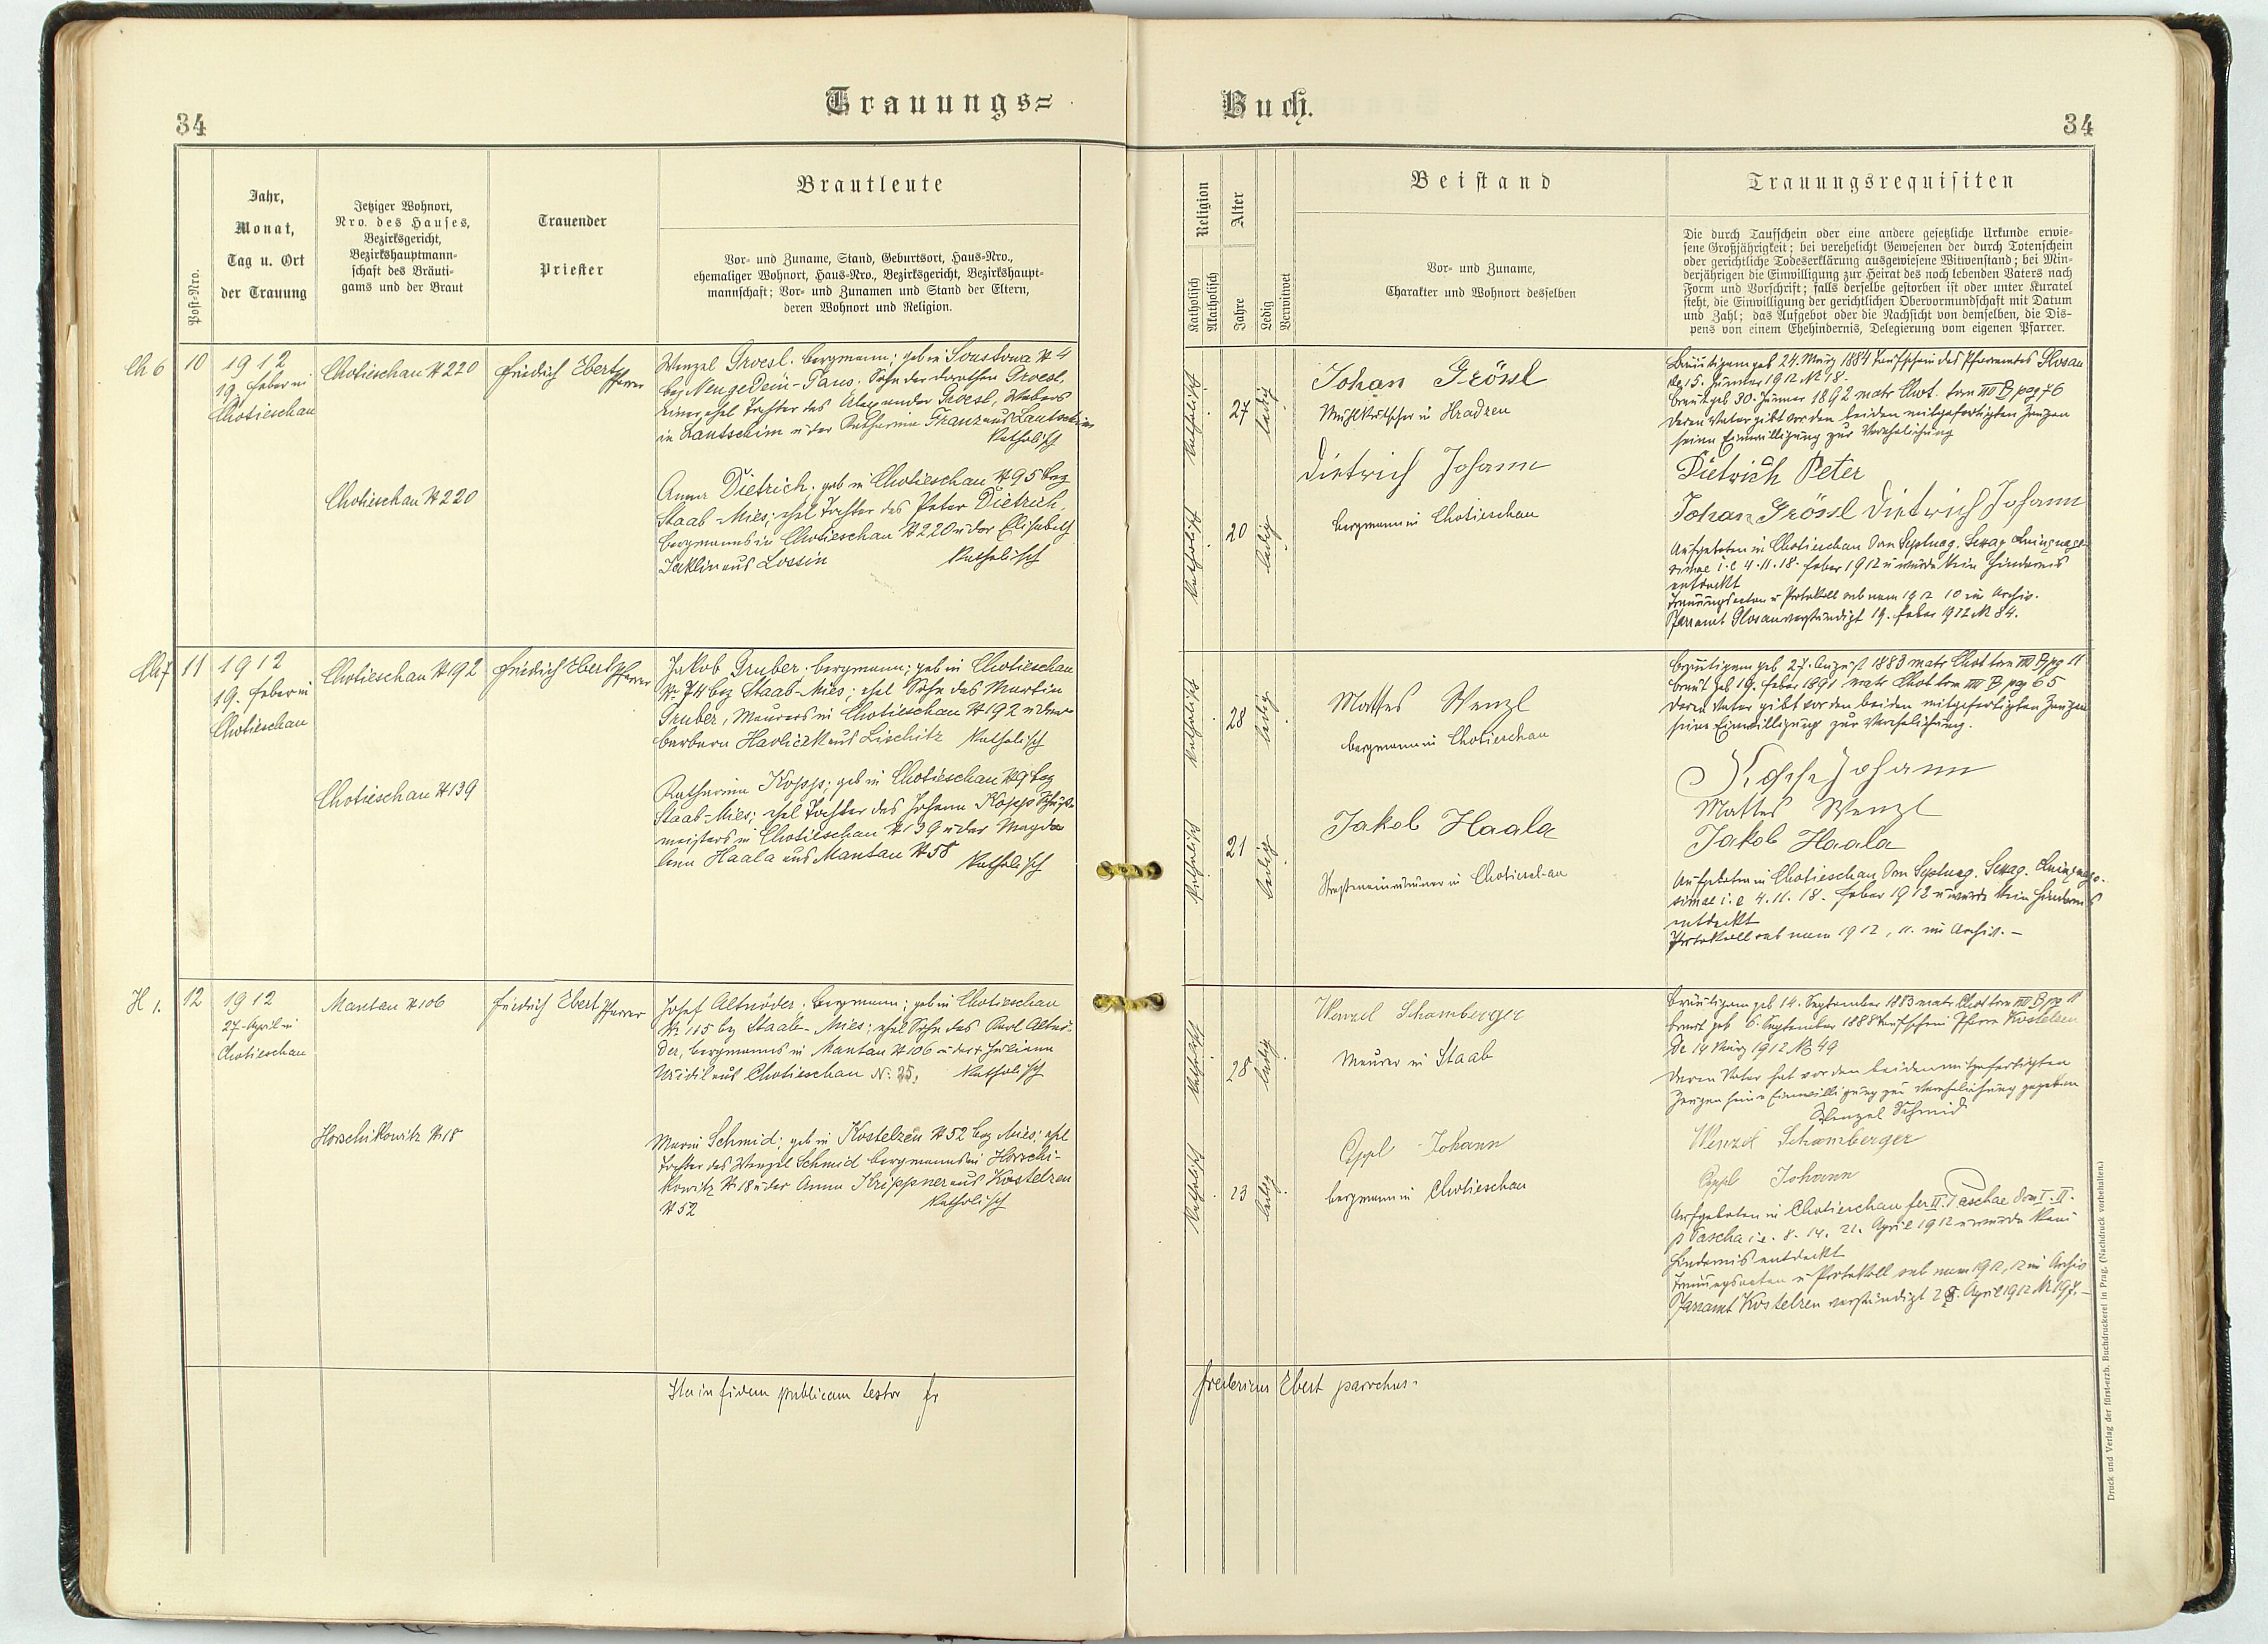 34
Trauungs=
Buch.
34
Post=Nro.
Jahr,
Monat,
Tag u. Ort
der Trauung
Jetziger Wohnort,
Nro. des Hauses,
Bezirksgericht,
Bezirkshauptmann=
schaft des Bräuti=
gams und der Braut
Trauender
Priester
Brautleute
Vor= und Zuname, Stand, Geburtsort, Haus=Nro.,
ehemaliger Wohnort, Haus=Nro., Bezirksgericht, Bezirkshaupt=
mannschaft; Vor= und Zunamen und Stand der Eltern,
deren Wohnort und Religion.
Religion
Katholisch
Akatholisch
Alter
Jahre
Ledig
Verwitwet
Beistand
Vor= und Zuname,
Charakter und Wohnort desselben
Trauungsrequisiten
Die durch Taufschein oder eine andere gesetzliche Urkunde erwie=
sene Großjährigkeit; bei verehelicht Gewesenen der durch Totenschein
oder gerichtliche Todeserklärung ausgewiesene Witwenstand; bei Min=
derjährigen die Einwilligung zur Heirat des noch lebenden Vaters nach
Form und Vorschrift; falls derselbe gestorben ist oder unter Kuratel
steht, die Einwilligung der gerichtlichen Obervormundschaft mit Datum
und Zahl; das Aufgebot oder die Nachsicht von demselben, die Dis=
pens von einem Ehehindernis, Delegierung vom eigenen Pfarrer.
Ch 6
10
1912
19. Feber in
Chotieschau
Chotieschau N 220
Friedrich Ebert
Pfarrer
Wenzel Groesl. Bergmann; geb in Soustowa N 4
bez Neugedein-Taus. Sohn der Dorothea Groesl,
einer ehel Tochter des Alexander Groesl, Webers
in Lautschim u der Katharina Franz aus Lautschim
Katholisch
Chotieschau N 220
Anna Dietrich. geb in Chotieschau N 95 bez
Staab-Mies; ehel Tochter des Peter Dietrich,
Bergmanns in Chotieschau N 220 u der Elisabeth
aus Lossin Katholisch
Katholisch
27
ledig
Johan Grössl
in Hradzen
Katholisch
20
ledig
Dietrich Johann
Bergmann in Chotieschau
Bräutigam geb 24. März 1884 Taufschein des Pfarramtes Glosau
de 15. Jänner 1912 N 18.
Braut geb 30. Jänner 1892 matr Chot. tom VIII B pag 76
Deren Vater gibt vor den beiden mitgefertigten Zeugen
seine Einwilligung zur Verehelichung
Dietrich Peter
Johan Grössl Dietrich Johann
Aufgeboten in Chotieschau Dom Septuag. Sexag Quinquage-
simae i.e 4. 11. 18. Feber 1912 u wurde kein Hindernis
entdeckt
Trauungsacten u Protokoll sub num 1912 10 im Archiv.
Pfarramt Glosau verständigt 19. Feber 1912 N 84.
Ch 7
11
1912
19. Feber in
Chotieschau
Chotieschau N 192
Friedrich Ebert Pfarrer
Jakob Gruber. Bergmann; geb in Chotieschau
N 74 bez Staab-Mies; ehel Sohn des Martin
Gruber, Maurers in Chotieschau N 192 u der
Barbara Havliczk aus Lischitz Katholisch
Chotieschau N 139
Katharina Kopp; geb in Chotieschau N 9 bez
Staab-Mies; ehel Tochter des Johann Kopp
meisters in Chotieschau N 139 u der Magda
lena Haala aus Mantau N 58 Katholisch
Katholisch
28
ledig
Mattes Wenzl
Bergmann in Chotieschau
Katholisch
21
ledig
Jakob Haala
in Chotieschau
Bräutigam geb 27. August 1883 matr Chot tom VIII B pg 11
Braut geb 19. Feber 1891 matr Chot tom VIII B pag 65
Deren Vater gibt vor den beiden mitgefertigten Zeugen
seine Einwilligung zur Verehelichung.
Johann
Mattes Wenzl
Jakob Haala
Aufgeboten in Chotieschau Dom Septuag. Sexag. Quinquage-
simae i.e 4. 11. 18. Feber 1912 u wurde kein Hindernis
entdeckt
Protokoll sub num 1912, 11. im Archiv. –
H 1.
12
1912
27. April in
Chotieschau
Mantau N 106
Friedrich Ebert Pfarrer
Josef Altnöder. Bergmann; geb in Chotieschau
N 115 bez Staab-Mies; ehel Sohn des Karl Altnö-
der, Bergmanns in Mantau N 106 u der + Juliana
aus Chotieschau N. 35. Katholisch
Horschikowitz N 18
Maria Schmid; geb in Kostelzen N 52 bez Mies; ehel
Tochter des Wenzel Schmid Bergmanns in Horschi-
kowitz N 18 u der Anna Krippner aus Kostelzen
N 52 Katholisch
Katholisch
28
ledig
Wenzel Schamberger
Maurer in Staab
Katholisch
23
ledig
Eppl Johann
Bergmann in Chotieschau
Bräutigam geb 14. September 1883 matr Chot tom VIII B pg 11
Braut geb 6. September 1888 Taufschein Pfarre Kostelzen
de 14 März 1912 No 49
Deren Vater hat vor den beiden mitgefertigten
Zeugen seine Einwilligung zur Verehelichung gegeben
Wenzel Schmid
Wenzel Schamberger
Eppl Johann
Aufgeboten in Chotieschau fer II. Paschae Dom I. II.
p Pascha i.e. 8. 14. 21. April 1912 u wurde kein
Hindernis entdeckt
Trauungsacten u Protokoll sub num 1912, 12 im Archiv
Pfarramt Kostelzen verständigt 28. April 1912 N 197. –
Ita in fidem publicam testor Fr
Fredericus Ebert parochus.
Druck und Verlag der fürst-erzb. Buchdruckerei in Prag. (Nachdruck vorbehalten.)